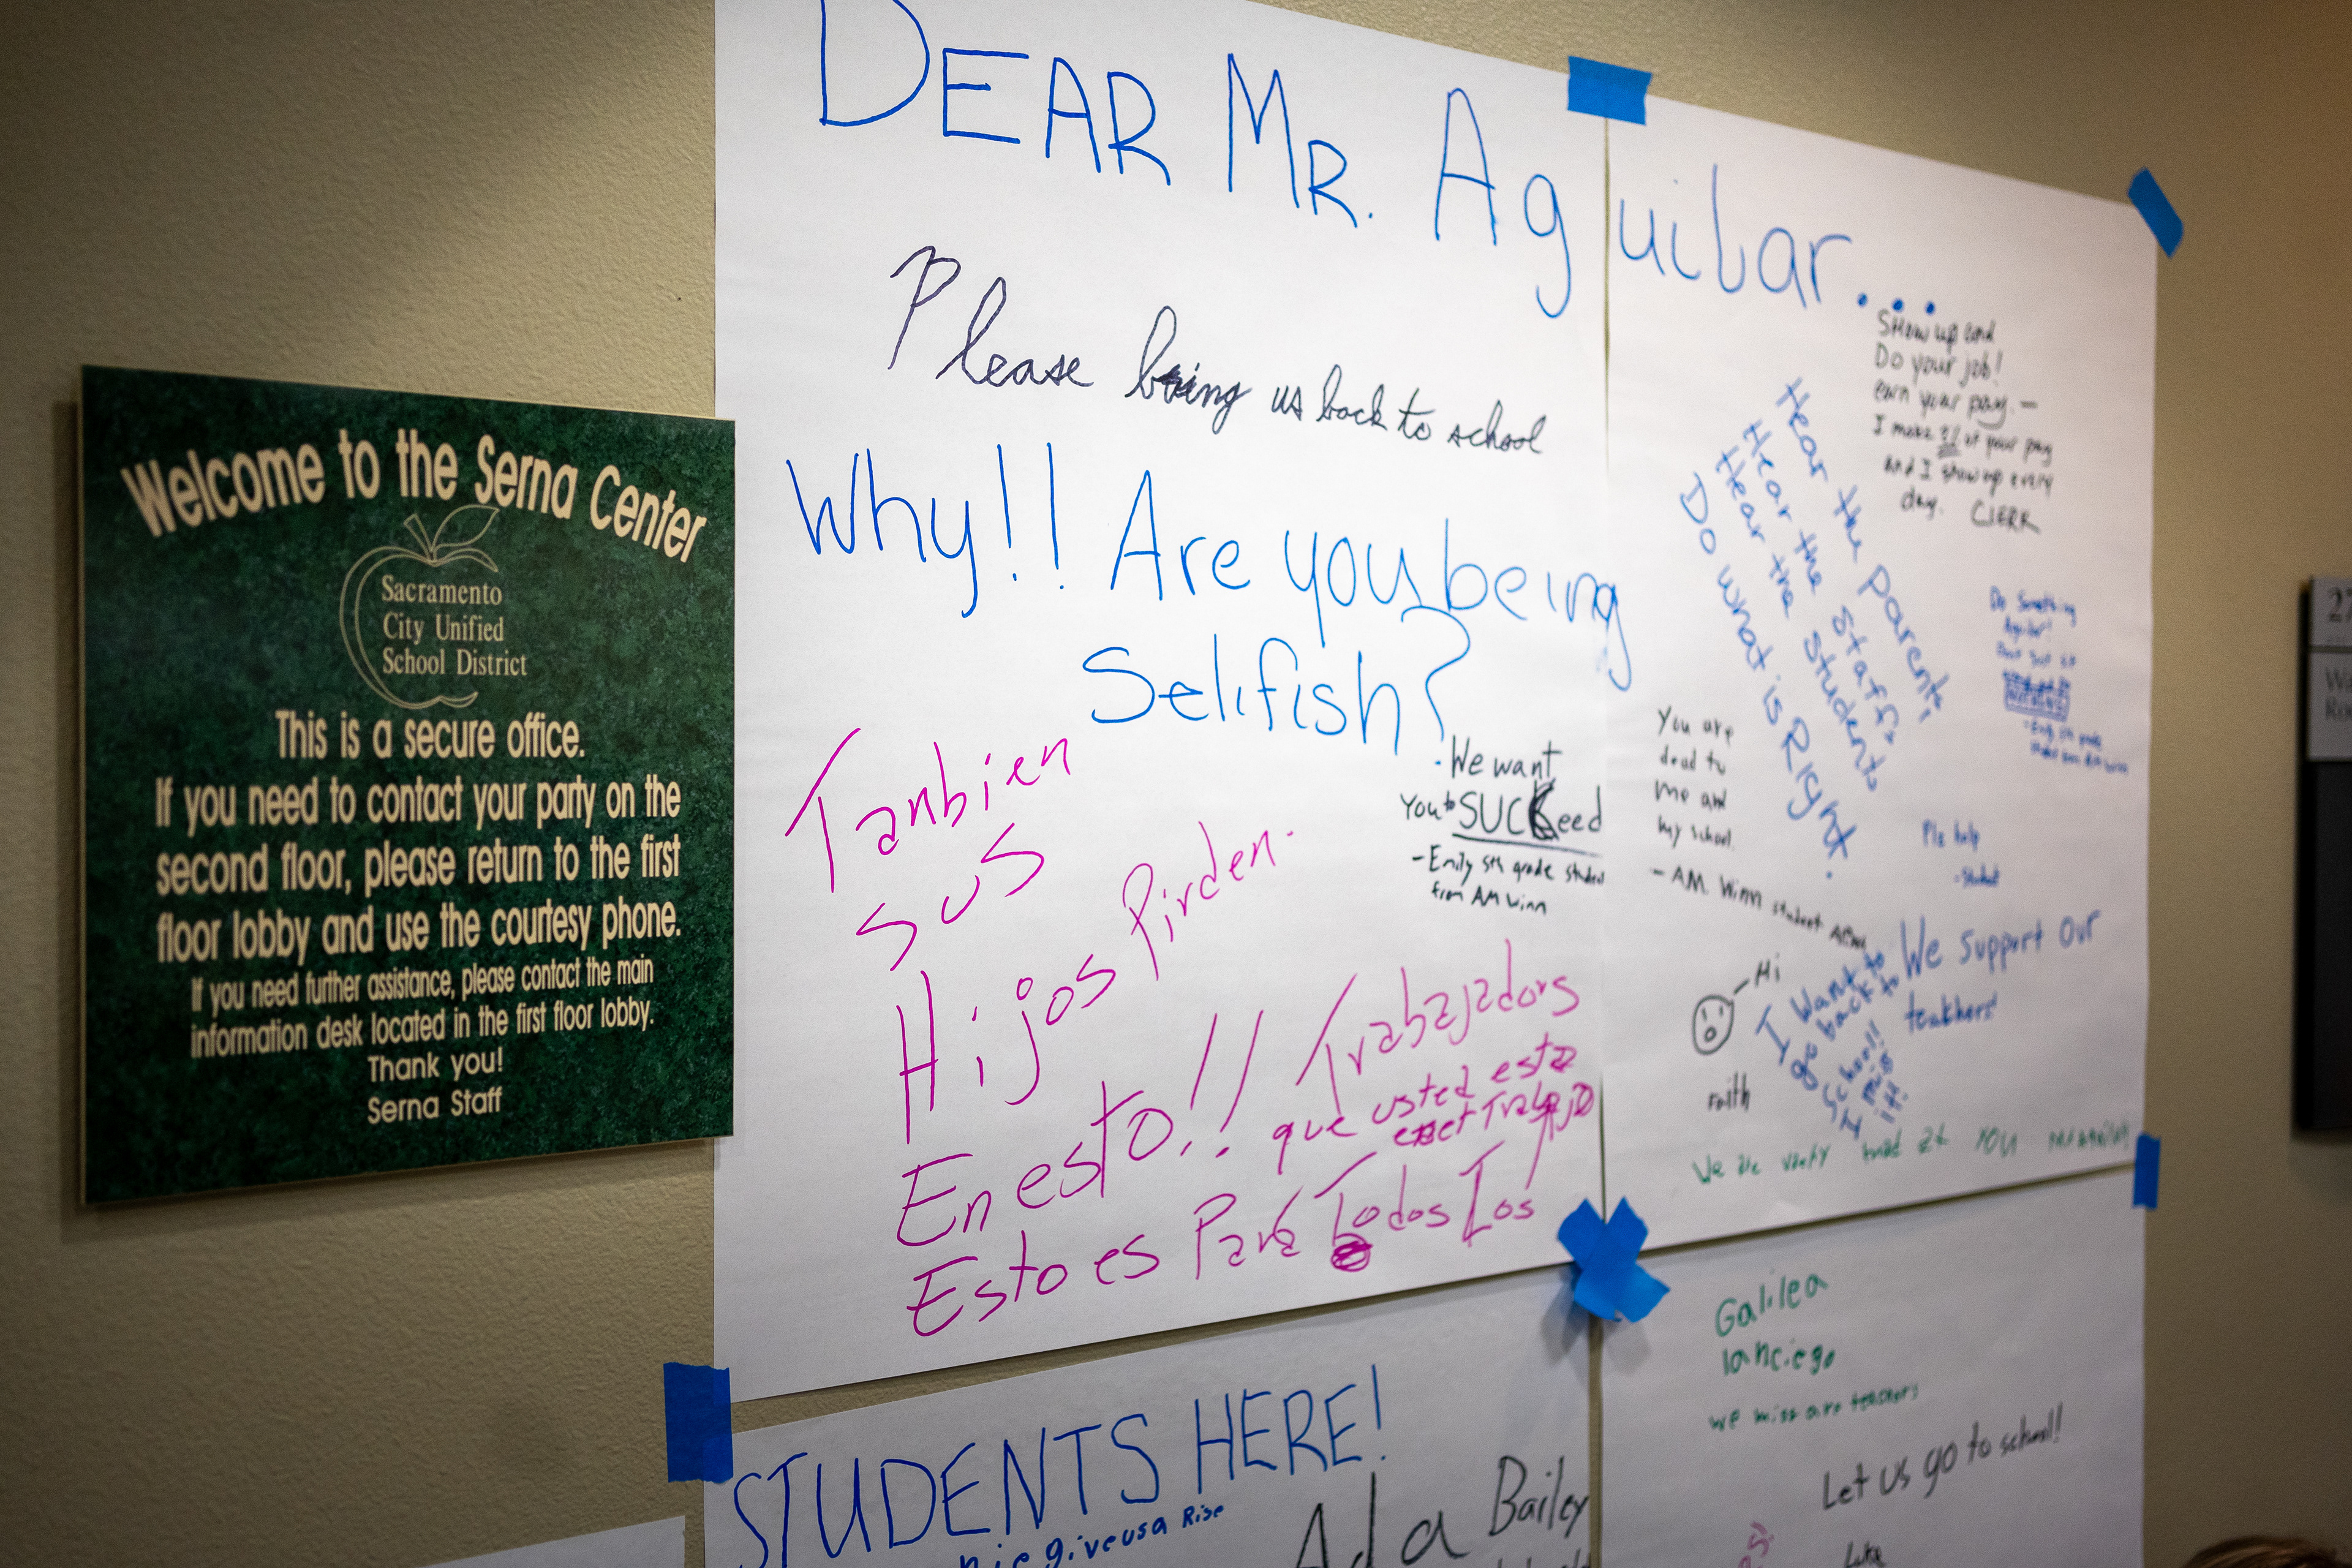 Welcome to the Serna Center
Sacramento
City Unified
School District
This is a secure office.
If you need to contact your party on the
second floor, please return to the first
floor lobby and use the courtesy phone.
If you need further assistance, please contact the main
information desk located in the first floor lobby.
Thank you!
Serna Staff
DEAR MR. Aguilar...
Please bring us back to school
Why!! Are you being
Selifish?
Tanbien
sus
Hijos Pirden.
En esto!! Trabajadors
que usted esta
Esto es Para Todos Los
We want
You to SUCKeed
- Emily 5th grade student
from AM Winn
Show up and
Do your job!
earn your pay. -
I make of your pay
and I show up every
day. CLERK
Hear the parents
Hear the staff
Hear the students
Do what is Right.
Do Something
Aguilar!
You are
dead to
me and
my school.
- A.M. Winn student
Plz help
- student
Hi
Faith
I want to
go back to
school!
I mis
it!
We support our
teachers!
We are mad at YOU
STUDENTS HERE!
give us a Rise
Ada Bailey
Galilea
lanciego
we miss are teachers
Let us go to school!
Luke
27